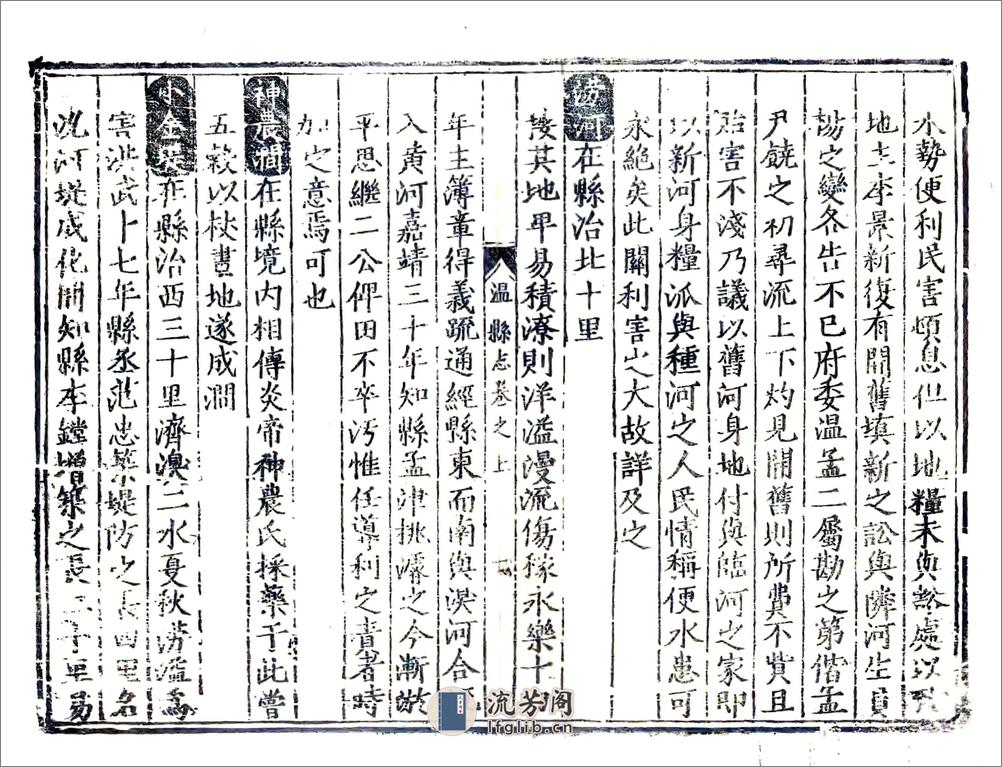 水勢便利民害頓息但以地糧未與豁處以致
地主李景新復有開舊填新之訟與隣河生員
楊之變各告不已府委溫孟二屬勘之第偕孟
尹饒之初尋流上下灼見開舊則所費不貲且
貽害不淺乃議以舊河身地付與臨河之家即
以新河身糧派與種河之人民情稱便水患可
永絕矣此關利害之大故詳及之
澇河在縣治北十里
其地平易積潦則洋溢漫流傷稼永樂十
溫縣志卷之上
年主簿章得義疏通經縣東而南與湨河合
入黄河嘉靖三十年知縣孟津挑濬之今漸淤
平思繼二公俾田不卒汚惟任導利之責者時
加之意焉可也
神農澗在縣境内相傳炎帝神農氏採藥于此嘗
五穀以杖畫地遂成澗
小金堤在縣治西三十里濟湨二水夏秋澇溢爲
害洪武十七年縣丞范忠築堤防之長四里名
沇河堤成化間知縣李鏜增築之長二十里易
流芳阁
lfglib.cn